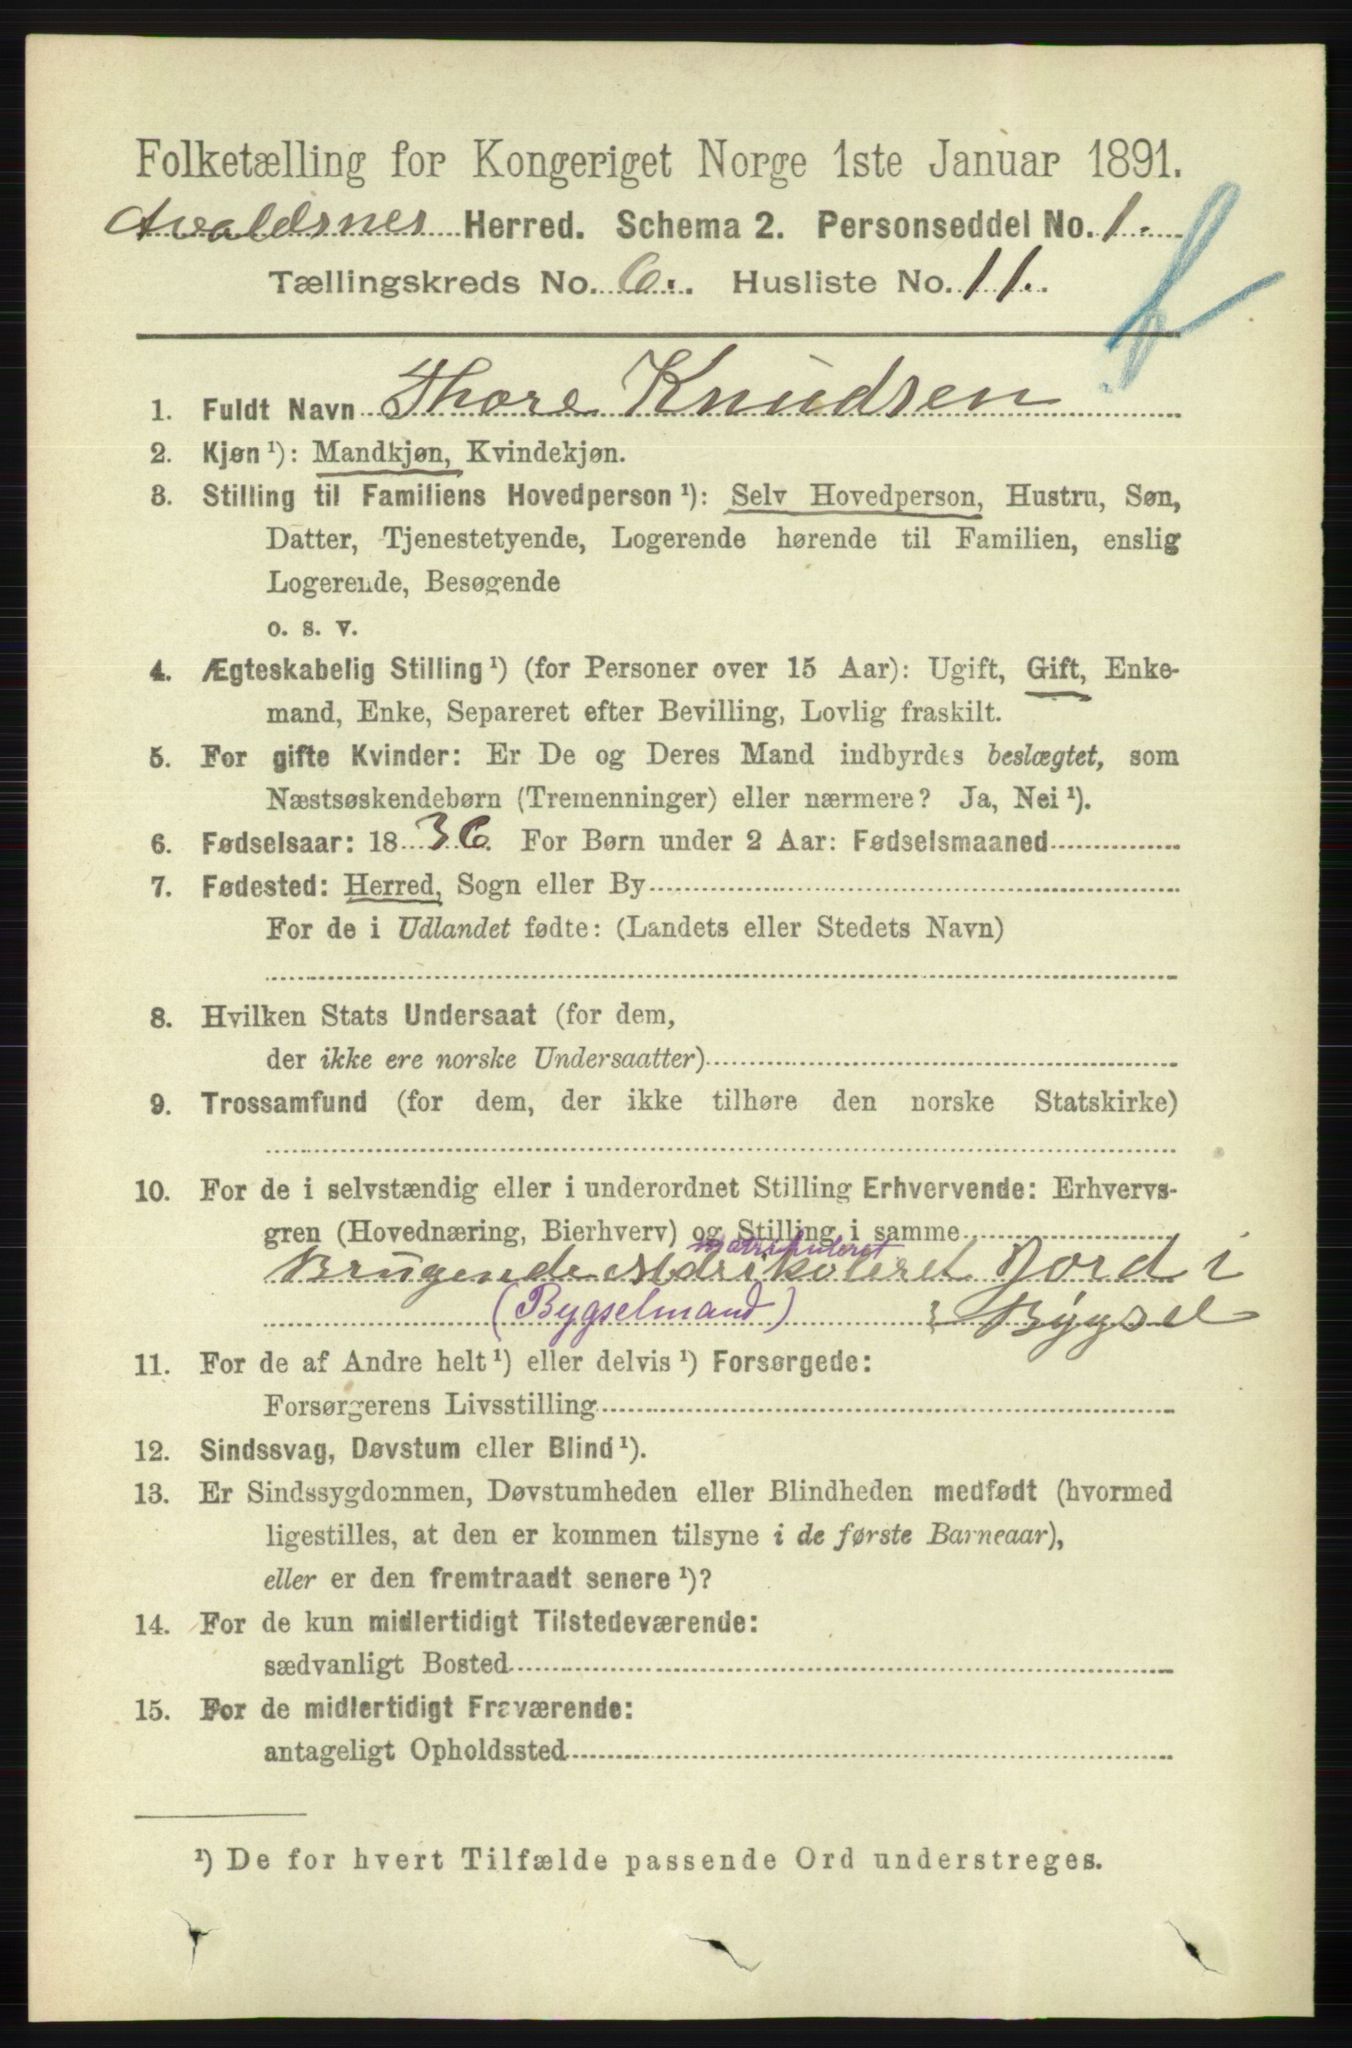 Folketælling for Kongeriget Norge 1ste Januar 1891.
Avaldsnes Herred. Schema 2. Personseddel No. 1.
Tællingskreds No. 6. Husliste No. 11.
1. Fuldt Navn Thore Knudsen
2. Kjøn ¹): Mandkjøn, Kvindekjøn.
3. Stilling til Familiens Hovedperson ¹): Selv Hovedperson, Hustru, Søn,
Datter, Tjenestetyende, Logerende hørende til Familien, enslig
Logerende, Besøgende
o. s. v.
4. Ægteskabelig Stilling ¹) (for Personer over 15 Aar): Ugift, Gift, Enke-
mand, Enke, Separeret efter Bevilling, Lovlig fraskilt.
5. For gifte Kvinder: Er De og Deres Mand indbyrdes beslægtet, som
Næstsøskendebørn (Tremenninger) eller nærmere? Ja, Nei ¹).
6. Fødselsaar: 1836. For Børn under 2 Aar: Fødselsmaaned
7. Fødested: Herred, Sogn eller By
For de i Udlandet fødte: (Landets eller Stedets Navn)
8. Hvilken Stats Undersaat (for dem,
der ikke ere norske Undersaatter)
9. Trossamfund (for dem, der ikke tilhøre den norske Statskirke)
10. For de i selvstændig eller i underordnet Stilling Erhvervende: Erhvervs-
gren (Hovednæring, Bierhverv) og Stilling i samme
matrikuleret
Brugende Matrikuleret Jord i
(Bygselmand) Bygsel
11. For de af Andre helt ¹) eller delvis ¹) Forsørgede:
Forsørgerens Livsstilling
12. Sindssvag, Døvstum eller Blind ¹).
13. Er Sindssygdommen, Døvstumheden eller Blindheden medfødt (hvormed
ligestilles, at den er kommen tilsyne i de første Barneaar),
eller er den fremtraadt senere ¹)?
14. For de kun midlertidigt Tilstedeværende:
sædvanligt Bosted
15. For de midlertidigt Fraværende:
antageligt Opholdssted
¹) De for hvert Tilfælde passende Ord understreges.